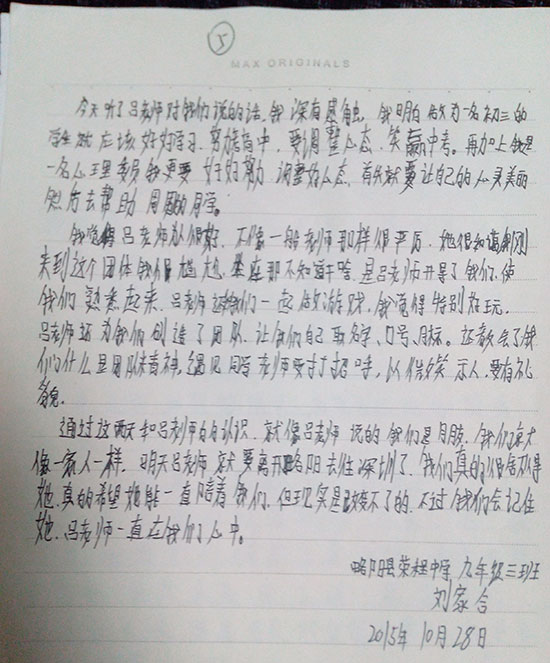 5
MAX ORIGINALS
今天听了吕老师对我们说的话,我深有感触,我明白做为一名初三的
学生就应该好好学习,努力考高中,要调整心态,笑赢中考。再加上我是
一名心理委员我更要好好努力,调整好心态,首先就要让自己的心灵美丽
然后去帮助周围的同学。
我觉得吕老师为人很好,不像一般老师那样很严厉,她很和蔼刚刚
来到这个团体我们很尴尬,坐在那不知道干啥,是吕老师开导了我们,使
我们熟悉起来,吕老师还给我们一起做游戏,我觉得特别好玩。
吕老师还为我们创造了团队,让我们自己取名字、口号、目标。还教会了我
们什么是团队精神,遇见同学老师要打招呼,以微笑示人,要有礼
貌。
通过这两天和吕老师的认识,就像吕老师说的我们是同胞,我们就
像一家人一样,明天吕老师就要离开略阳去往深圳了,我们真的很舍不得
她,真的希望她能一直陪着我们,但现实是改变不了的,不过我们会记住
她,吕老师一直在我们心中。
略阳县荣程中学 九年级三班
刘家合
2015年10月28日